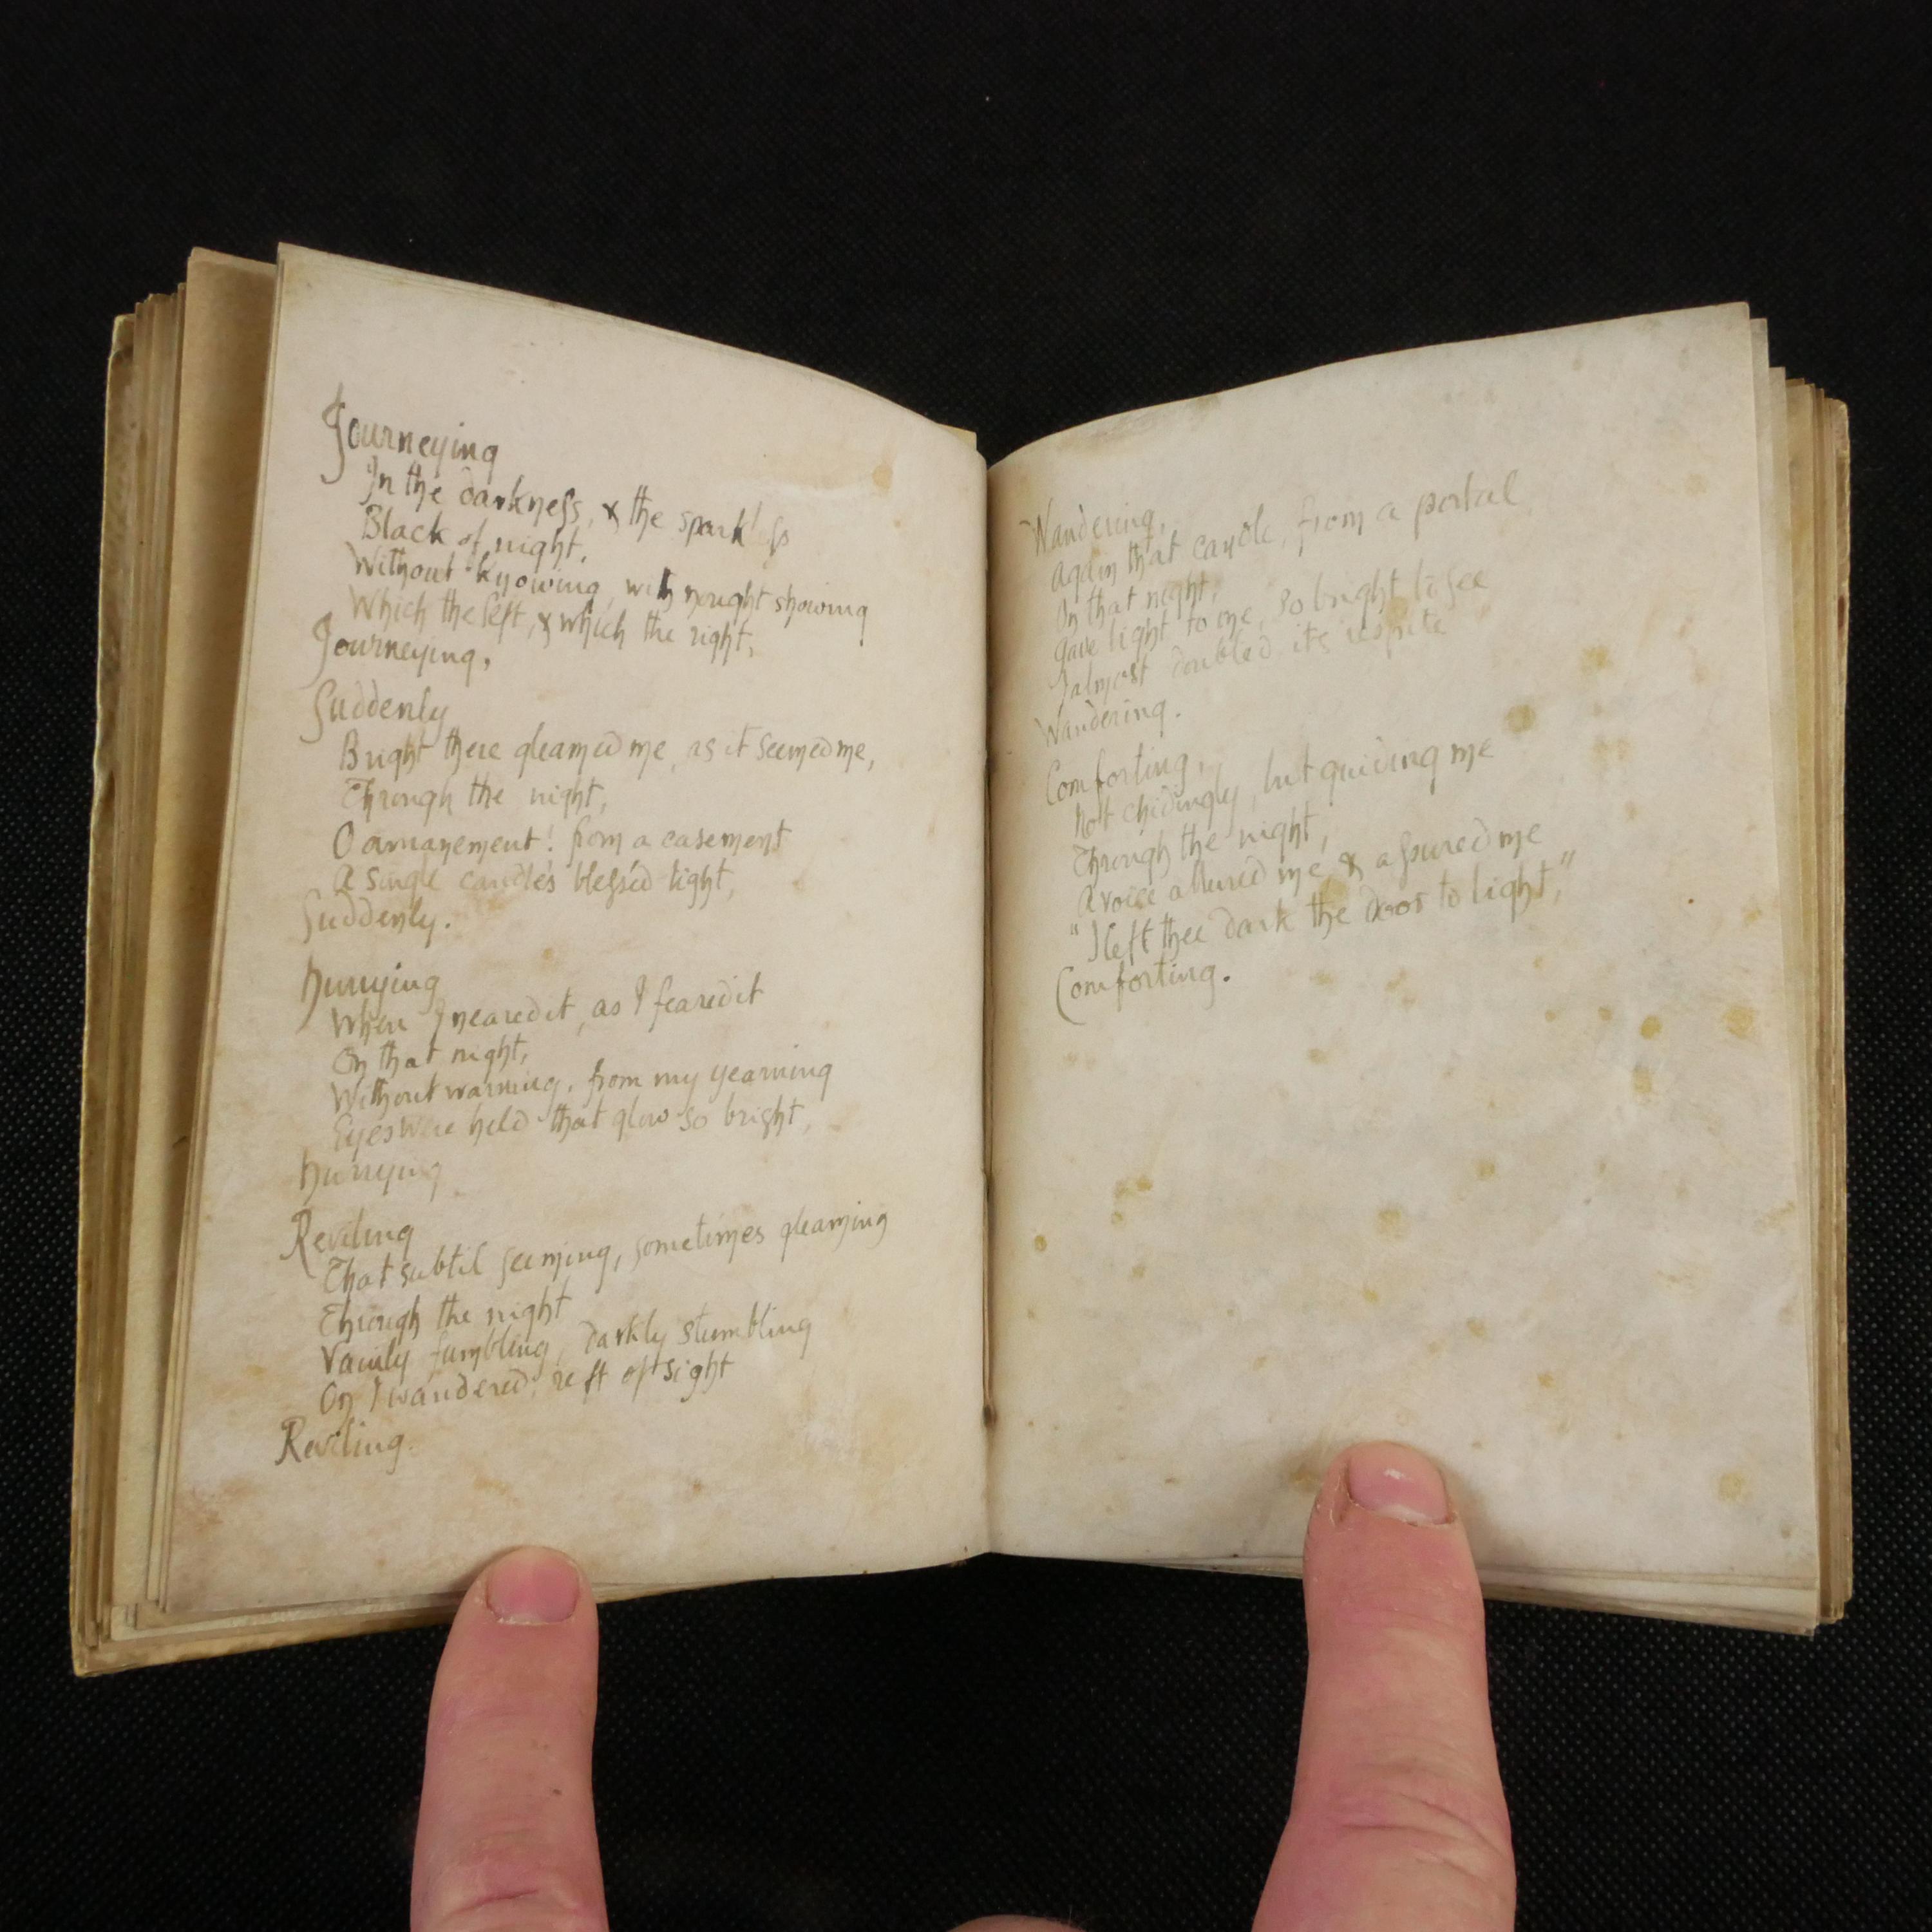 Journeying
In the darkness, & the sparkless
Black of night,
Without knowing, with nought showing
Which the left, & which the right,
Journeying,
Suddenly
Bright there gleamed me, as it seemed me,
Through the night,
O amazement! from a casement
A single candle's blessed light,
Suddenly.
Hurrying
When I neared it, as I feared it
On that night,
Without warning, from my yearning
Eyes were held that glow so bright,
Hurrying
Reviling
That subtil seeming, sometimes gleaming
Through the night
Vainly fumbling, darkly stumbling
On I wandered, reft of sight
Reviling.
Wandering,
Again that candle, from a portal
On that night,
Gave light to me, so bright to see
I almost doubled its respite
Wandering.
Comforting,
Not chidingly, but guiding me
Through the night,
A voice allured me, & assured me
"I left thee dark the door to light,"
Comforting.